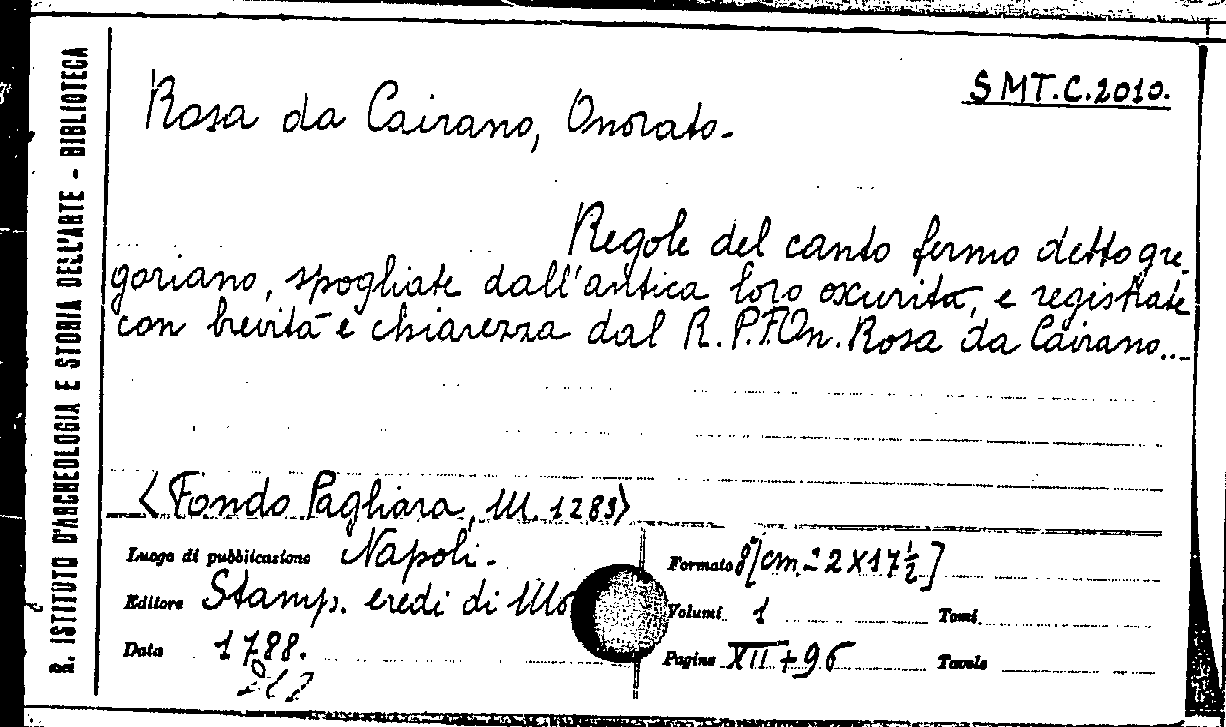 R. ISTITUTO D'ARCHEOLOGIA E STORIA DELL'ARTE - BIBLIOTECA
SMT.C.2010.
Rosa da Cairano, Onorato.
Regole del canto fermo detto gre-
goriano, spogliate dall'antica loro oscurità, e registrate
con brevità e chiarezza dal R.P.F.On. Rosa da Cairano...
<Fondo Pagliara, M. 1289>
Luogo di pubblicazione Napoli.
Formato 8°[cm. 22X17½]
Editore Stamp. eredi di Mo
Volumi 1 Tomi
Data 1788.
Pagine XII+96 Tavole